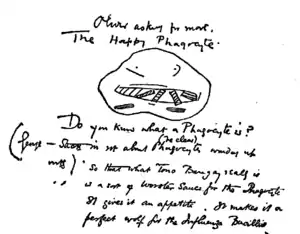 Oliver asking for more.
The Happy Phagocyte.
Do you know what a Phagocyte is?
(the clear)
in not about Phagocyte
So that what Tono Bungay really
is a sort of Worcester Sauce for the Phagocyte
It gives it an appetite. It makes it a
perfect wolf for the Influenza Bacillus